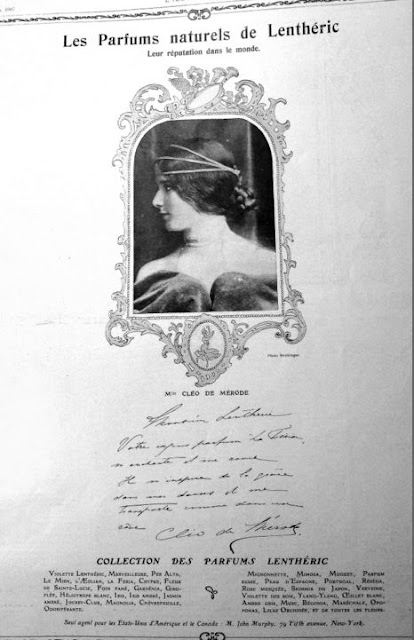 Les Parfums naturels de Lenthéric
Leur réputation dans le monde.
Photo Reutlinger
Mlle CLÉO DE MÉRODE
Monsieur Lenthéric
Votre exquis parfum La Féria,
m'enchante il me
Il m'inspire de la
dans mes danses et me
transporte comme dans un
rêve
Cléo de Mérode
COLLECTION DES PARFUMS LENTHÉRIC
VIOLETTE LENTHÉRIC, MERVEILLEUX, PER ALTA,
LE MIEN, L'ÆOLIAN, LA FERIA, CHYPRE, FLEUR
DE SAINTE-LUCIE, FOIN FANÉ, GARDÉNIA, GIRO-
FLÉE, HÉLIOTROPE BLANC, IRIS, IRIS AMBRÉ, JASMIN
AMBRÉ, JOCKEY-CLUB, MAGNOLIA, CHÈVREFEUILLE,
ODONTÉRANTE.
MIGNONNETTE, MIMOSA, MUGUET, PARFUM
RUSSE, PEAU D'ESPAGNE, PORTUGAL, RÉSÉDA,
ROSE MUSQUÉE, SENTEUR DU JAPON, VERVEINE,
VIOLETTE DES BOIS, YLANG-YLANG, ŒILLET BLANC,
AMBRE GRIS, MUSC, BÉGONIA, MARÉCHALE, OPO-
PONAX, LILAS ORCHIDÉE, ET DE TOUTES LES FLEURS.
Seul agent pour les États-Unis d'Amérique et le Canada : M. John Murphy, 79 Fifth avenue, New-York.